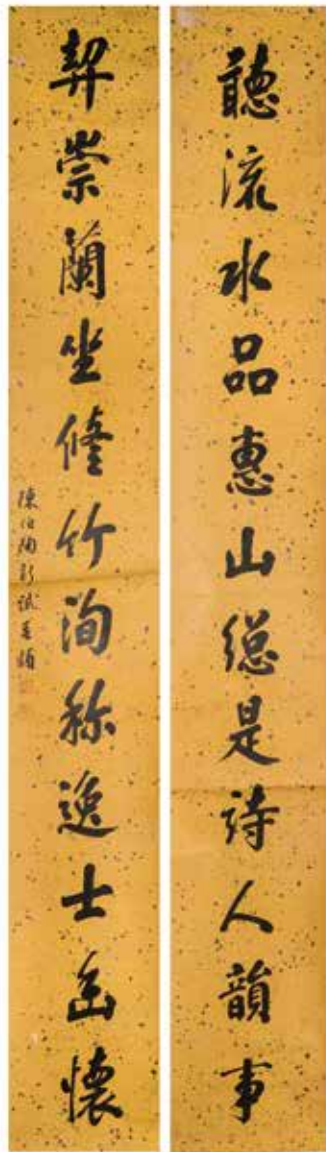 聽流水品惠山總是詩人韻事
契崇蘭坐脩竹洵称逸士幽懷
陳伯陶